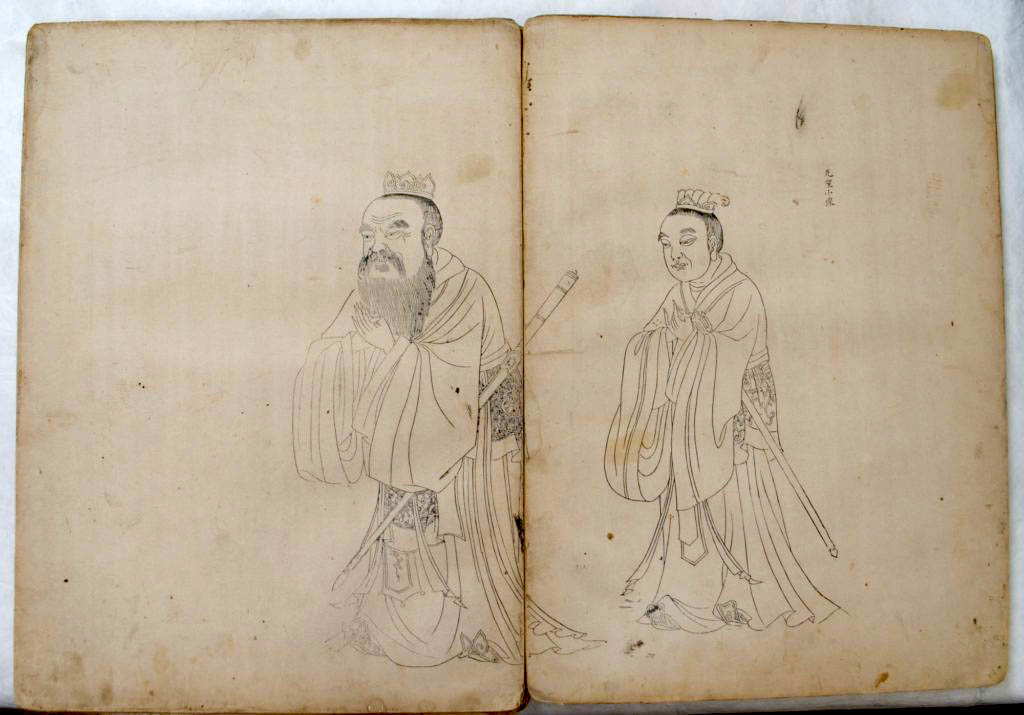 先聖小像